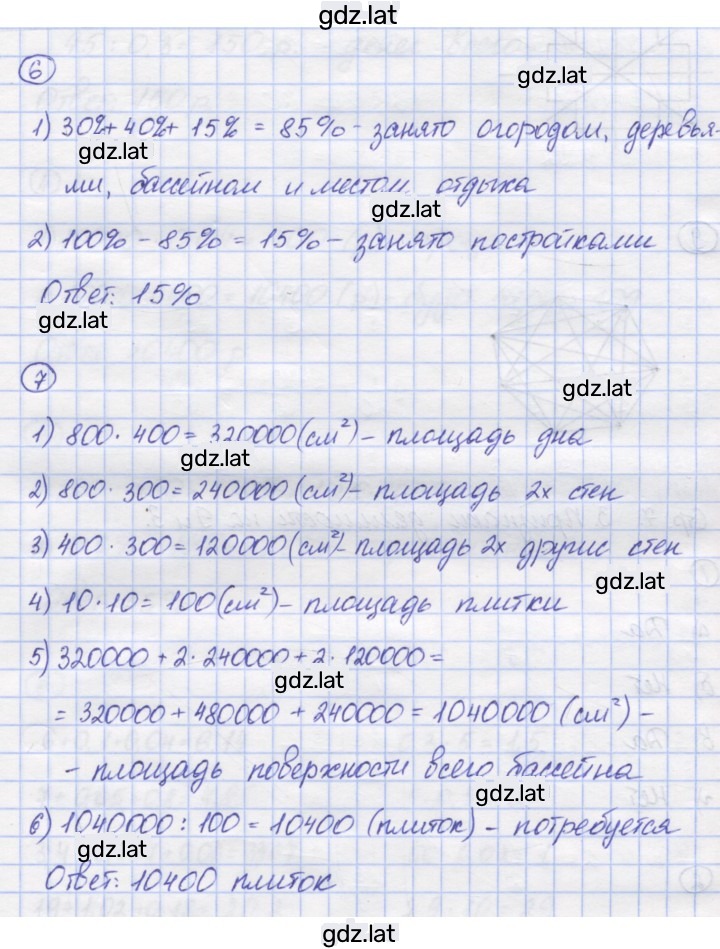 gdz.lat
6
gdz.lat
1) 30%+40%+ 15% = 85% - занято огородом, деревья-
gdz.lat
ми, бассейном и местом отдыха
gdz.lat
2) 100% - 85% = 15% - занято постройками
Ответ: 15%
gdz.lat
7
gdz.lat
1) 800 · 400 = 320000 (см²) - площадь дна
gdz.lat
2) 800 · 300 = 240000 (см²) - площадь 2х стен
3) 400 · 300 = 120000 (см²) - площадь 2х других стен
gdz.lat
4) 10 · 10 = 100 (см²) - площадь плитки
5) 320000 + 2 · 240000 + 2 · 120000 =
gdz.lat
= 320000 + 480000 + 240000 = 1040000 (см²) -
- площадь поверхности всего бассейна
gdz.lat
6) 1040000 : 100 = 10400 (плиток) - потребуется
gdz.lat
Ответ: 10400 плиток
gdz.lat